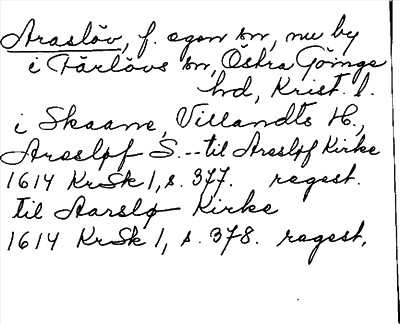 Araslöv, f. egen sn, nu by
i Färlövs sn, Östra Göinge
hd, Krist. l.
i Skaane, Villandts H.,
Aresløf S. -- til Aresløf Kirke
1614 KrSk 1, s. 377. regest.
til Aarslø Kirke
1614 KrSk 1, s. 378. regest.